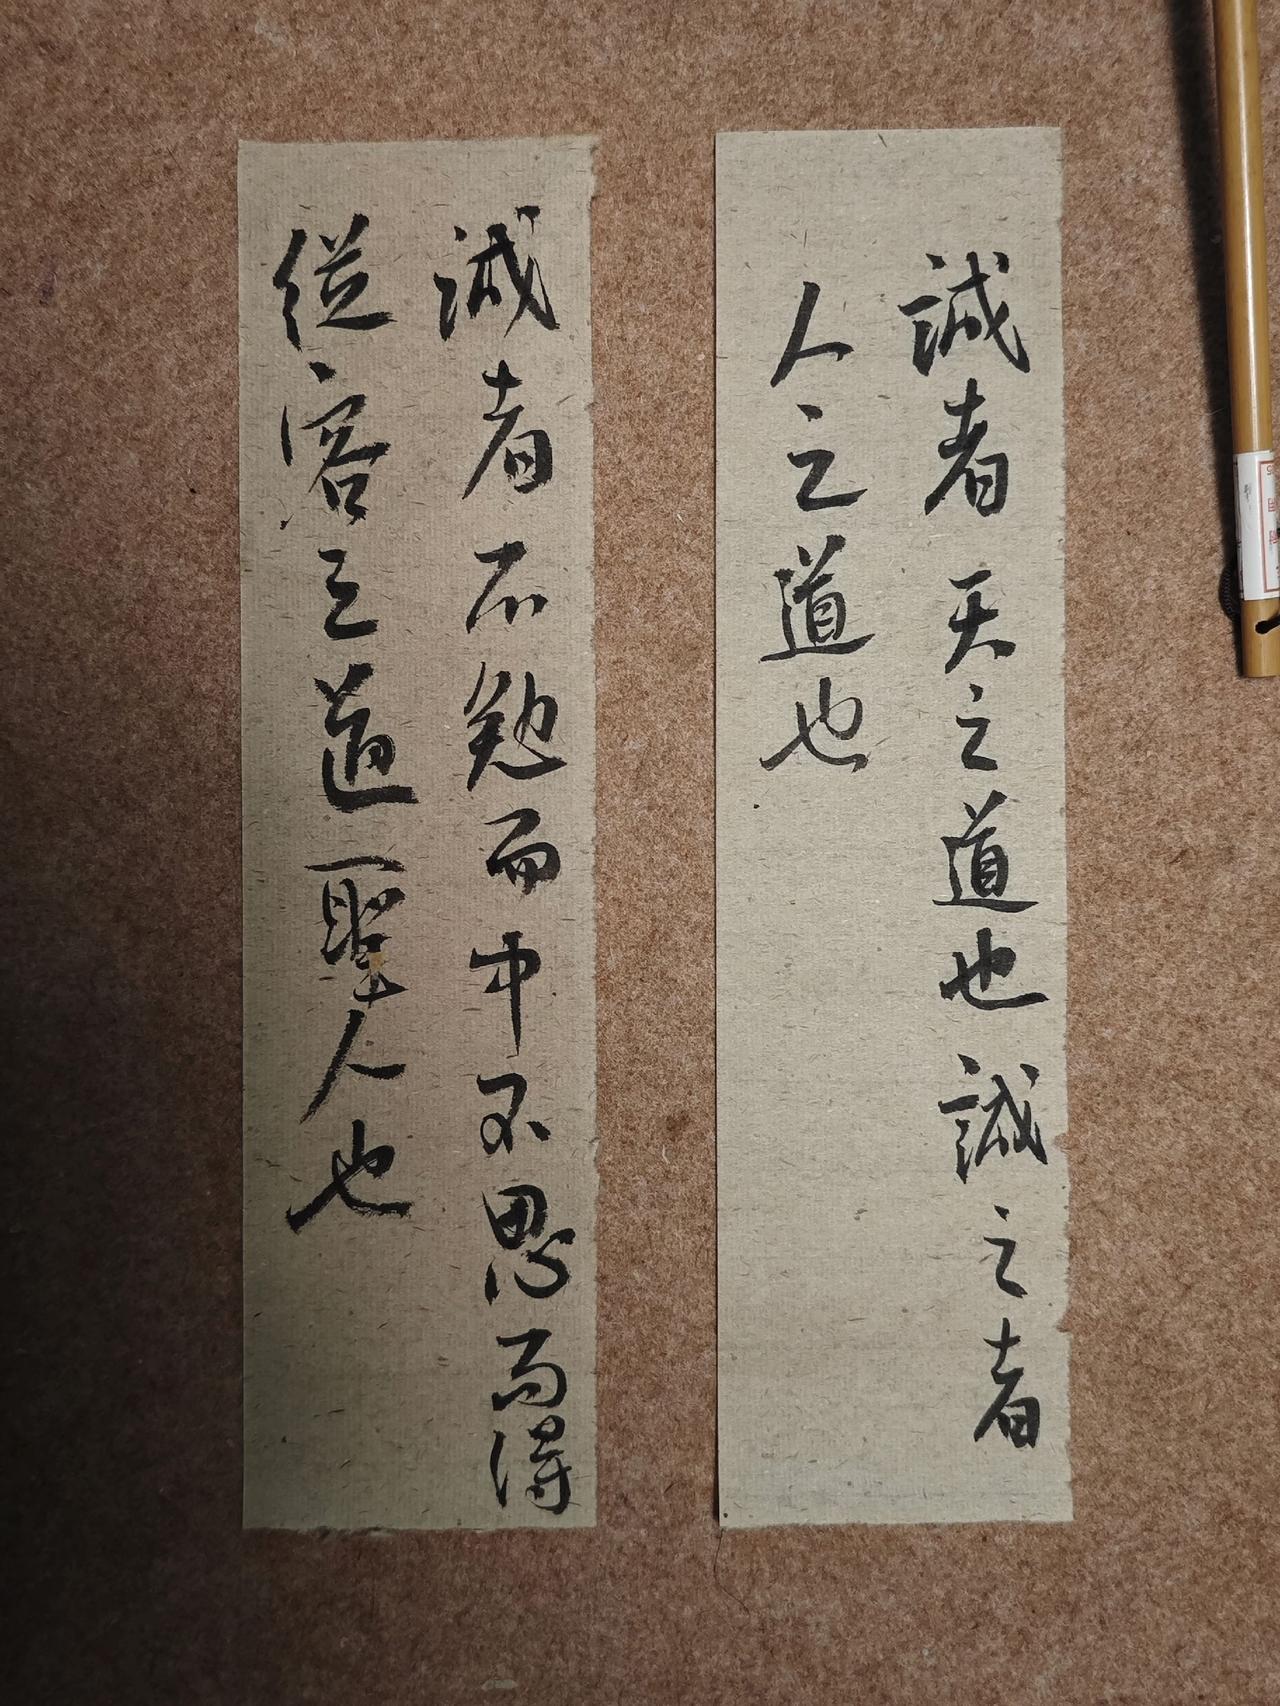 誠者天之道也誠之者
人之道也
誠者不勉而中不思而得
從容之道聖人也